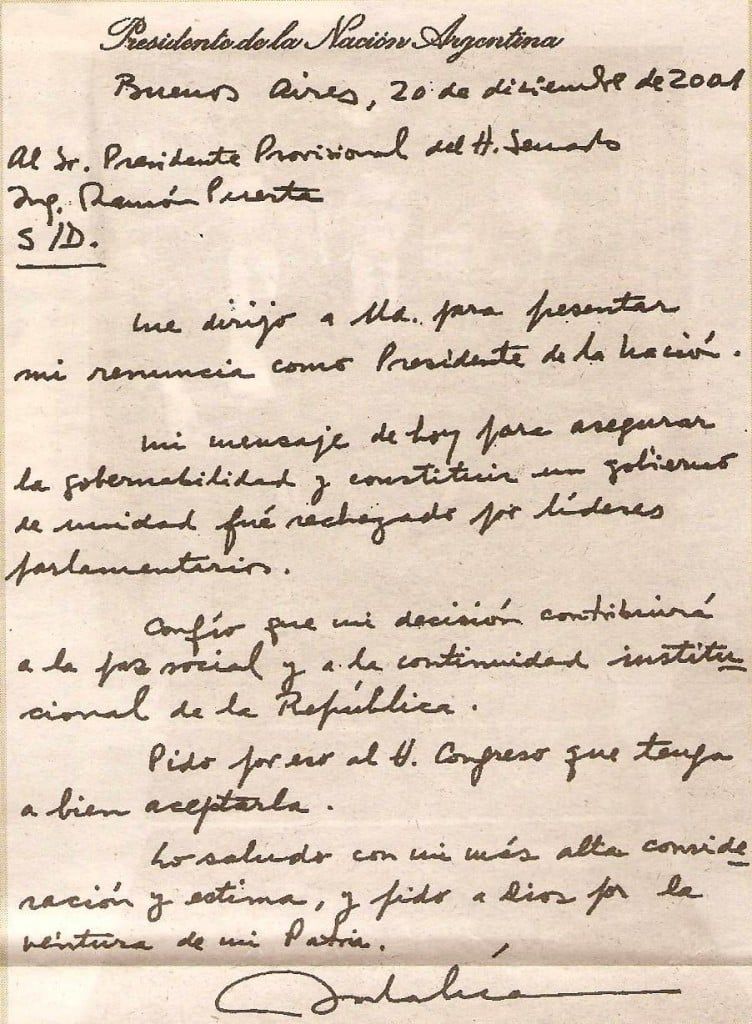 Presidente de la Nación Argentina
Buenos Aires, 20 de diciembre de 2001
Al Sr. Presidente Provisional del H. Senado
Ing. Ramón Puerta
S/D.
Me dirijo a Ud. para presentar
mi renuncia como Presidente de la Nación.
Mi mensaje de hoy para asegurar
la gobernabilidad y constituir un gobierno
de unidad fué rechazado por líderes
parlamentarios.
Confío que mi decisión contribuirá
a la paz social y a la continuidad institu
cional de la República.
Pido por eso al H. Congreso que tenga
a bien aceptarla.
Lo saludo con mi más alta conside
ración y estima, y pido a Dios por la
ventura de mi Patria.